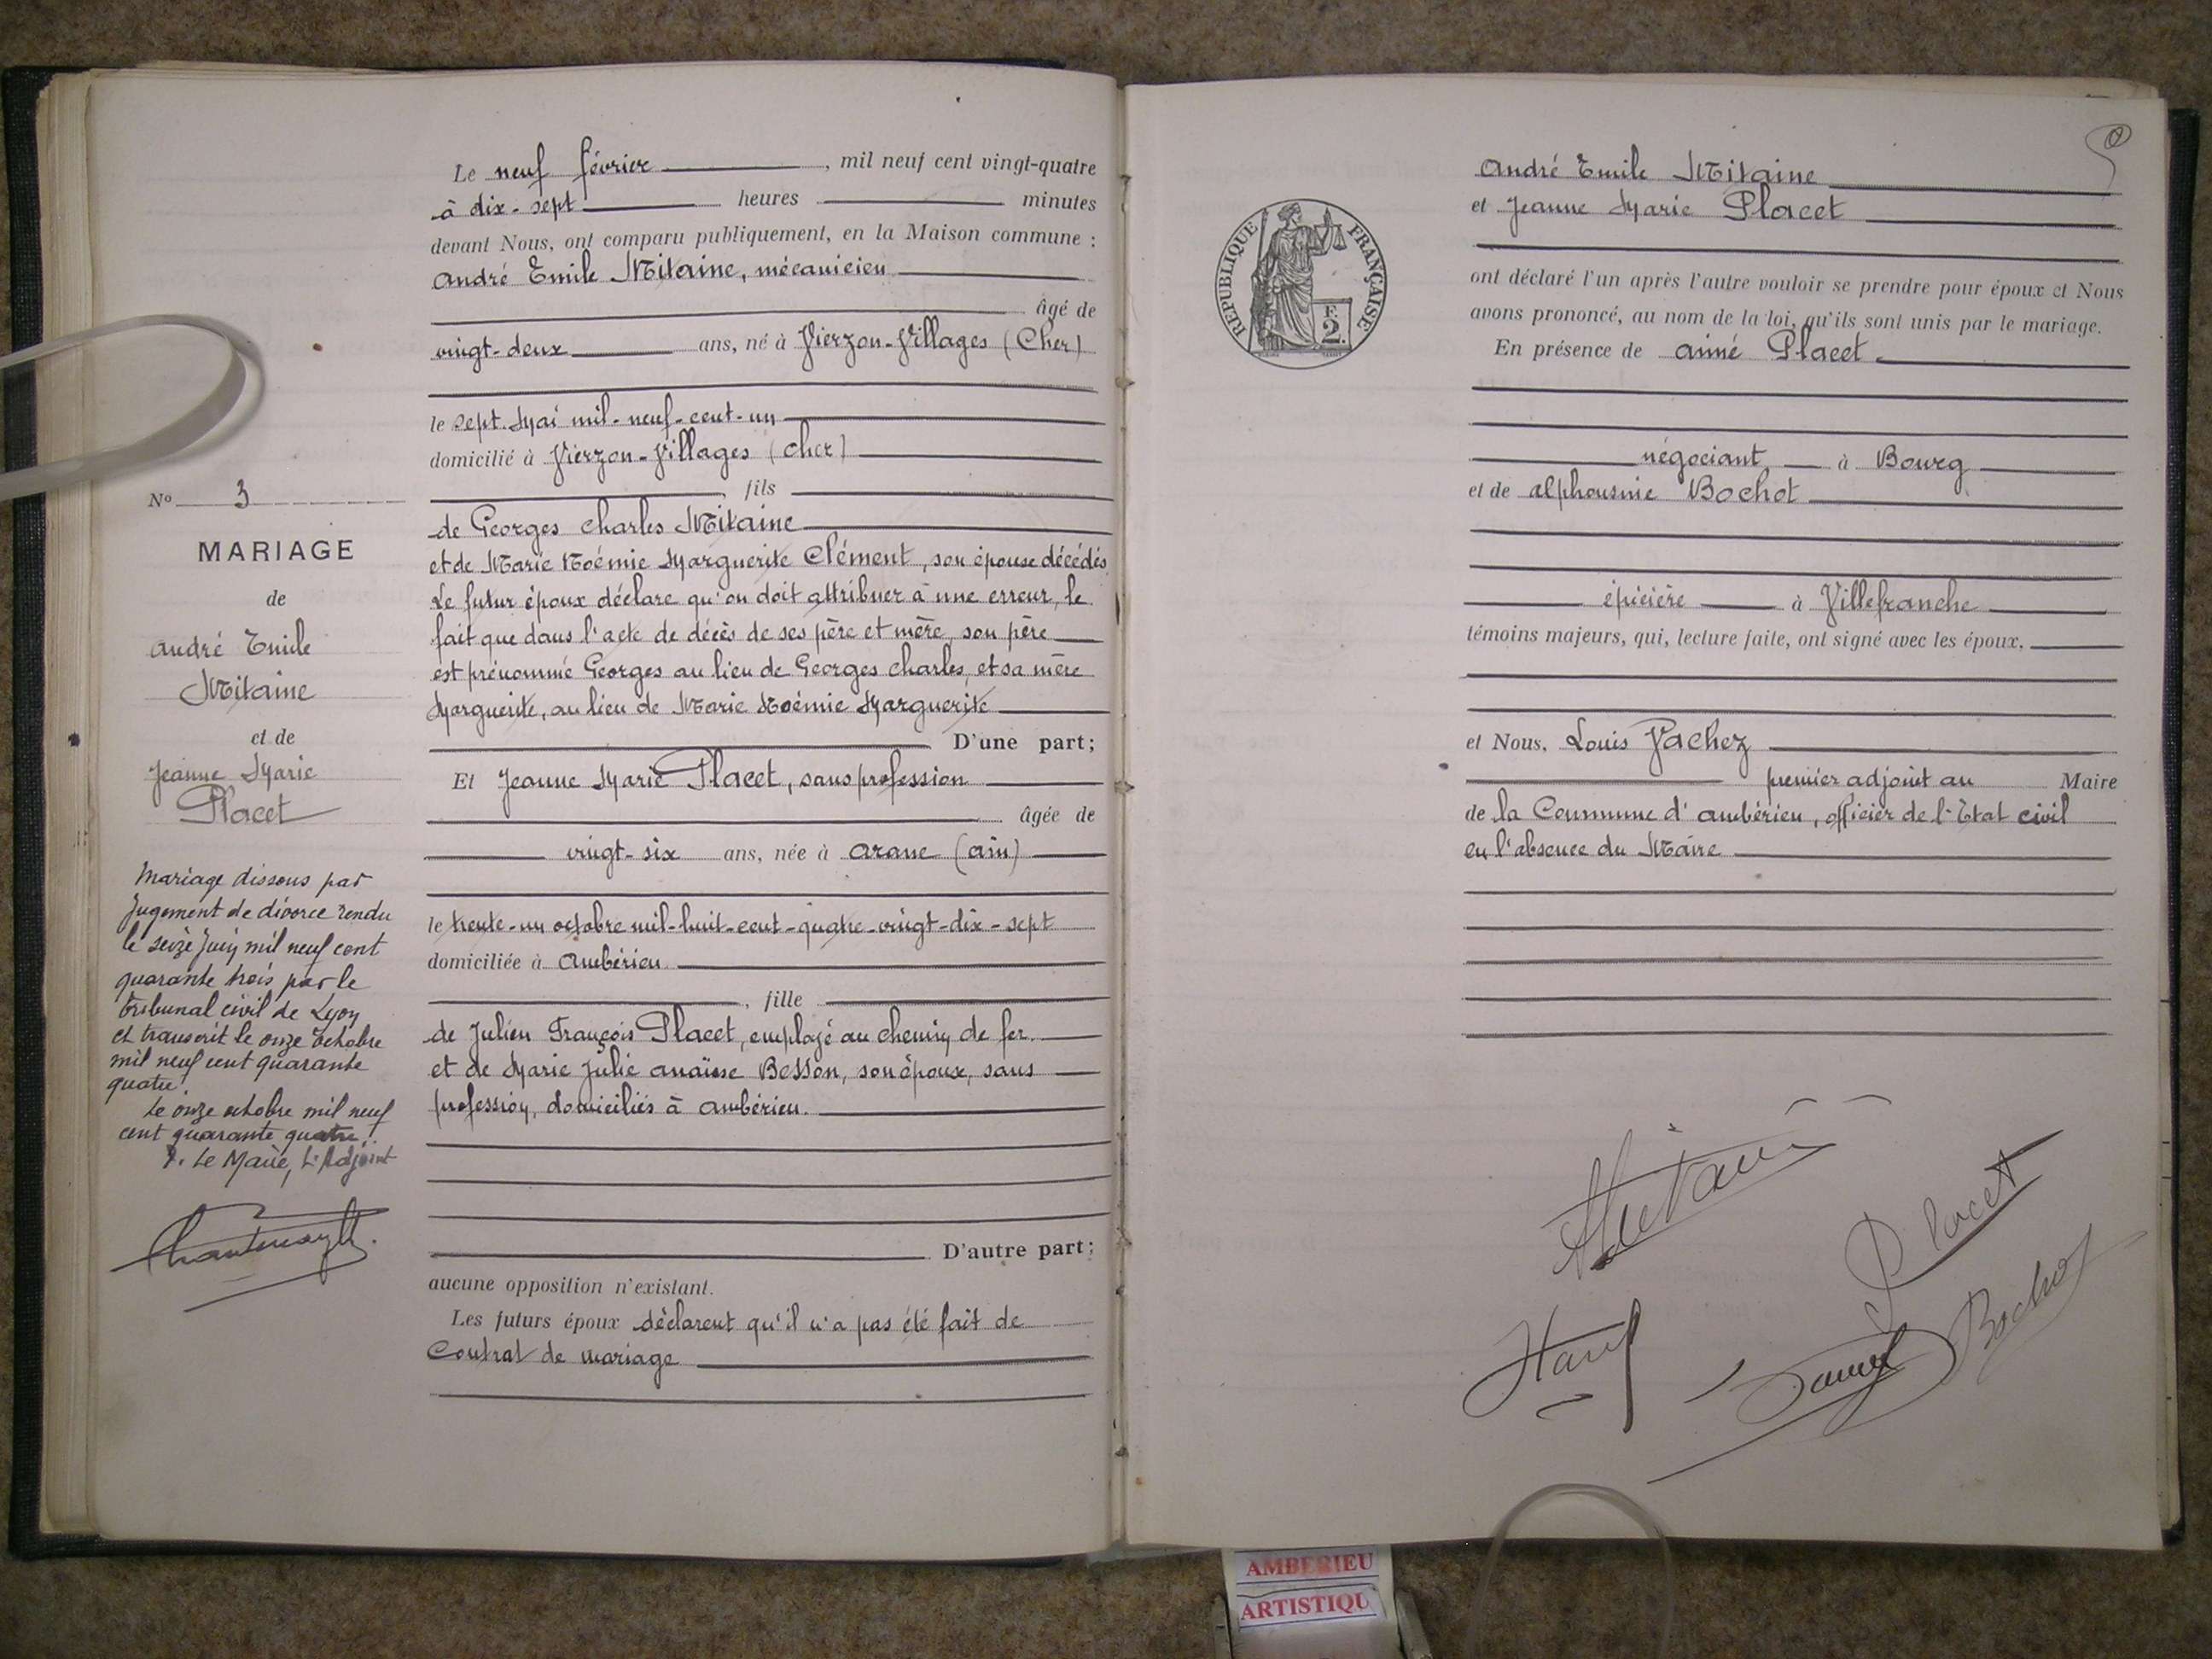 Le neuf février, mil neuf cent vingt-quatre
à dix-sept heures minutes
devant Nous, ont comparu publiquement, en la Maison commune :
André Emile Mitaine, mécanicien
âgé de
vingt-deux ans, né à Vierzon-Villages (Cher)
le sept Mai mil-neuf-cent-un
domicilié à Vierzon-Villages (Cher)
, fils
de Georges Charles Mitaine
et de Marie Noémie Marguerite Clément, son épouse décédés
Le futur époux déclare qu'on doit attribuer à une erreur, le
fait que dans l'acte de décès de ses père et mère, son père
est prénommé Georges au lieu de Georges Charles, et sa mère
Marguerite, au lieu de Marie Noémie Marguerite
D'une part;
Et Jeanne Marie Placet, sans profession
âgée de
vingt-six ans, née à Arane (Ain)
le trente-un octobre mil-huit-cent-quatre-vingt-dix-sept
domiciliée à Ambérieu
, fille
de Julien François Placet, employé au chemin de fer
et de Marie Julie Anaïse Besson, son époux, sans
profession, domiciliés à Ambérieu.
D'autre part;
aucune opposition n'existant.
Les futurs époux déclarent qu'il n'a pas été fait de
Contrat de mariage
No 3
MARIAGE
de
André Emile
Mitaine
et de
Jeanne Marie
Placet
Mariage dissous par
Jugement de divorce rendu
le seize Juin mil neuf cent
quarante trois par le
tribunal civil de Lyon
et transcrit le onze Octobre
mil neuf cent quarante
quatre.
Le onze octobre mil neuf
cent quarante quatre.
P. Le Maire, L'Adjoint
RÉPUBLIQUE FRANÇAISE
F.
2.
André Emile Mitaine
et Jeanne Marie Placet
ont déclaré l'un après l'autre vouloir se prendre pour époux et Nous
avons prononcé, au nom de la loi, qu'ils sont unis par le mariage.
En présence de Aimé Placet
négociant à Bourg
et de Alphonsine Bochot
épicière à Villefranche
témoins majeurs, qui, lecture faite, ont signé avec les époux.
et Nous, Louis Vachez
premier adjoint au Maire
de la Commune d'Ambérieu, officier de l'Etat civil
en l'absence du Maire
Mitaine
Placet
Bochot
AMBERIEU
ARTISTIQU